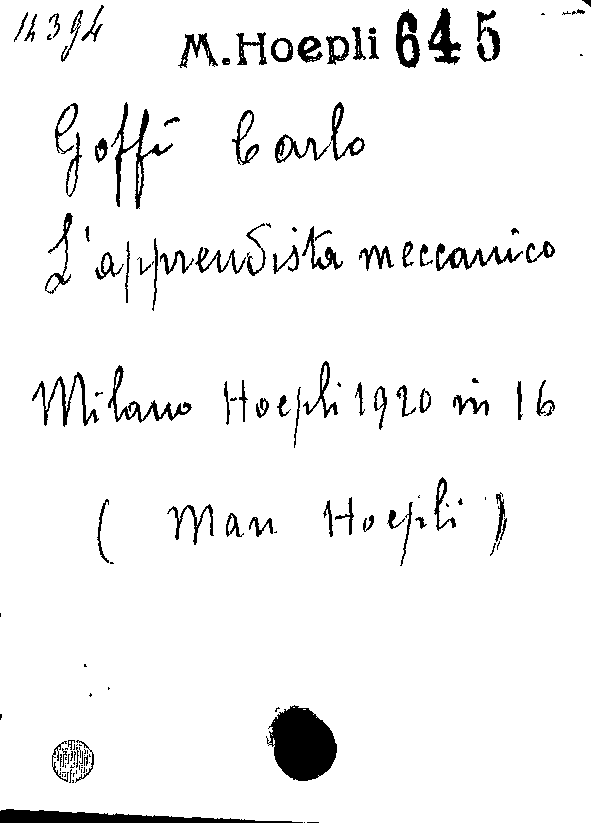 14394
M. Hoepli 645
Goffi Carlo
L'apprendista meccanico
Milano Hoepli 1920 in 16
( Man Hoepli )